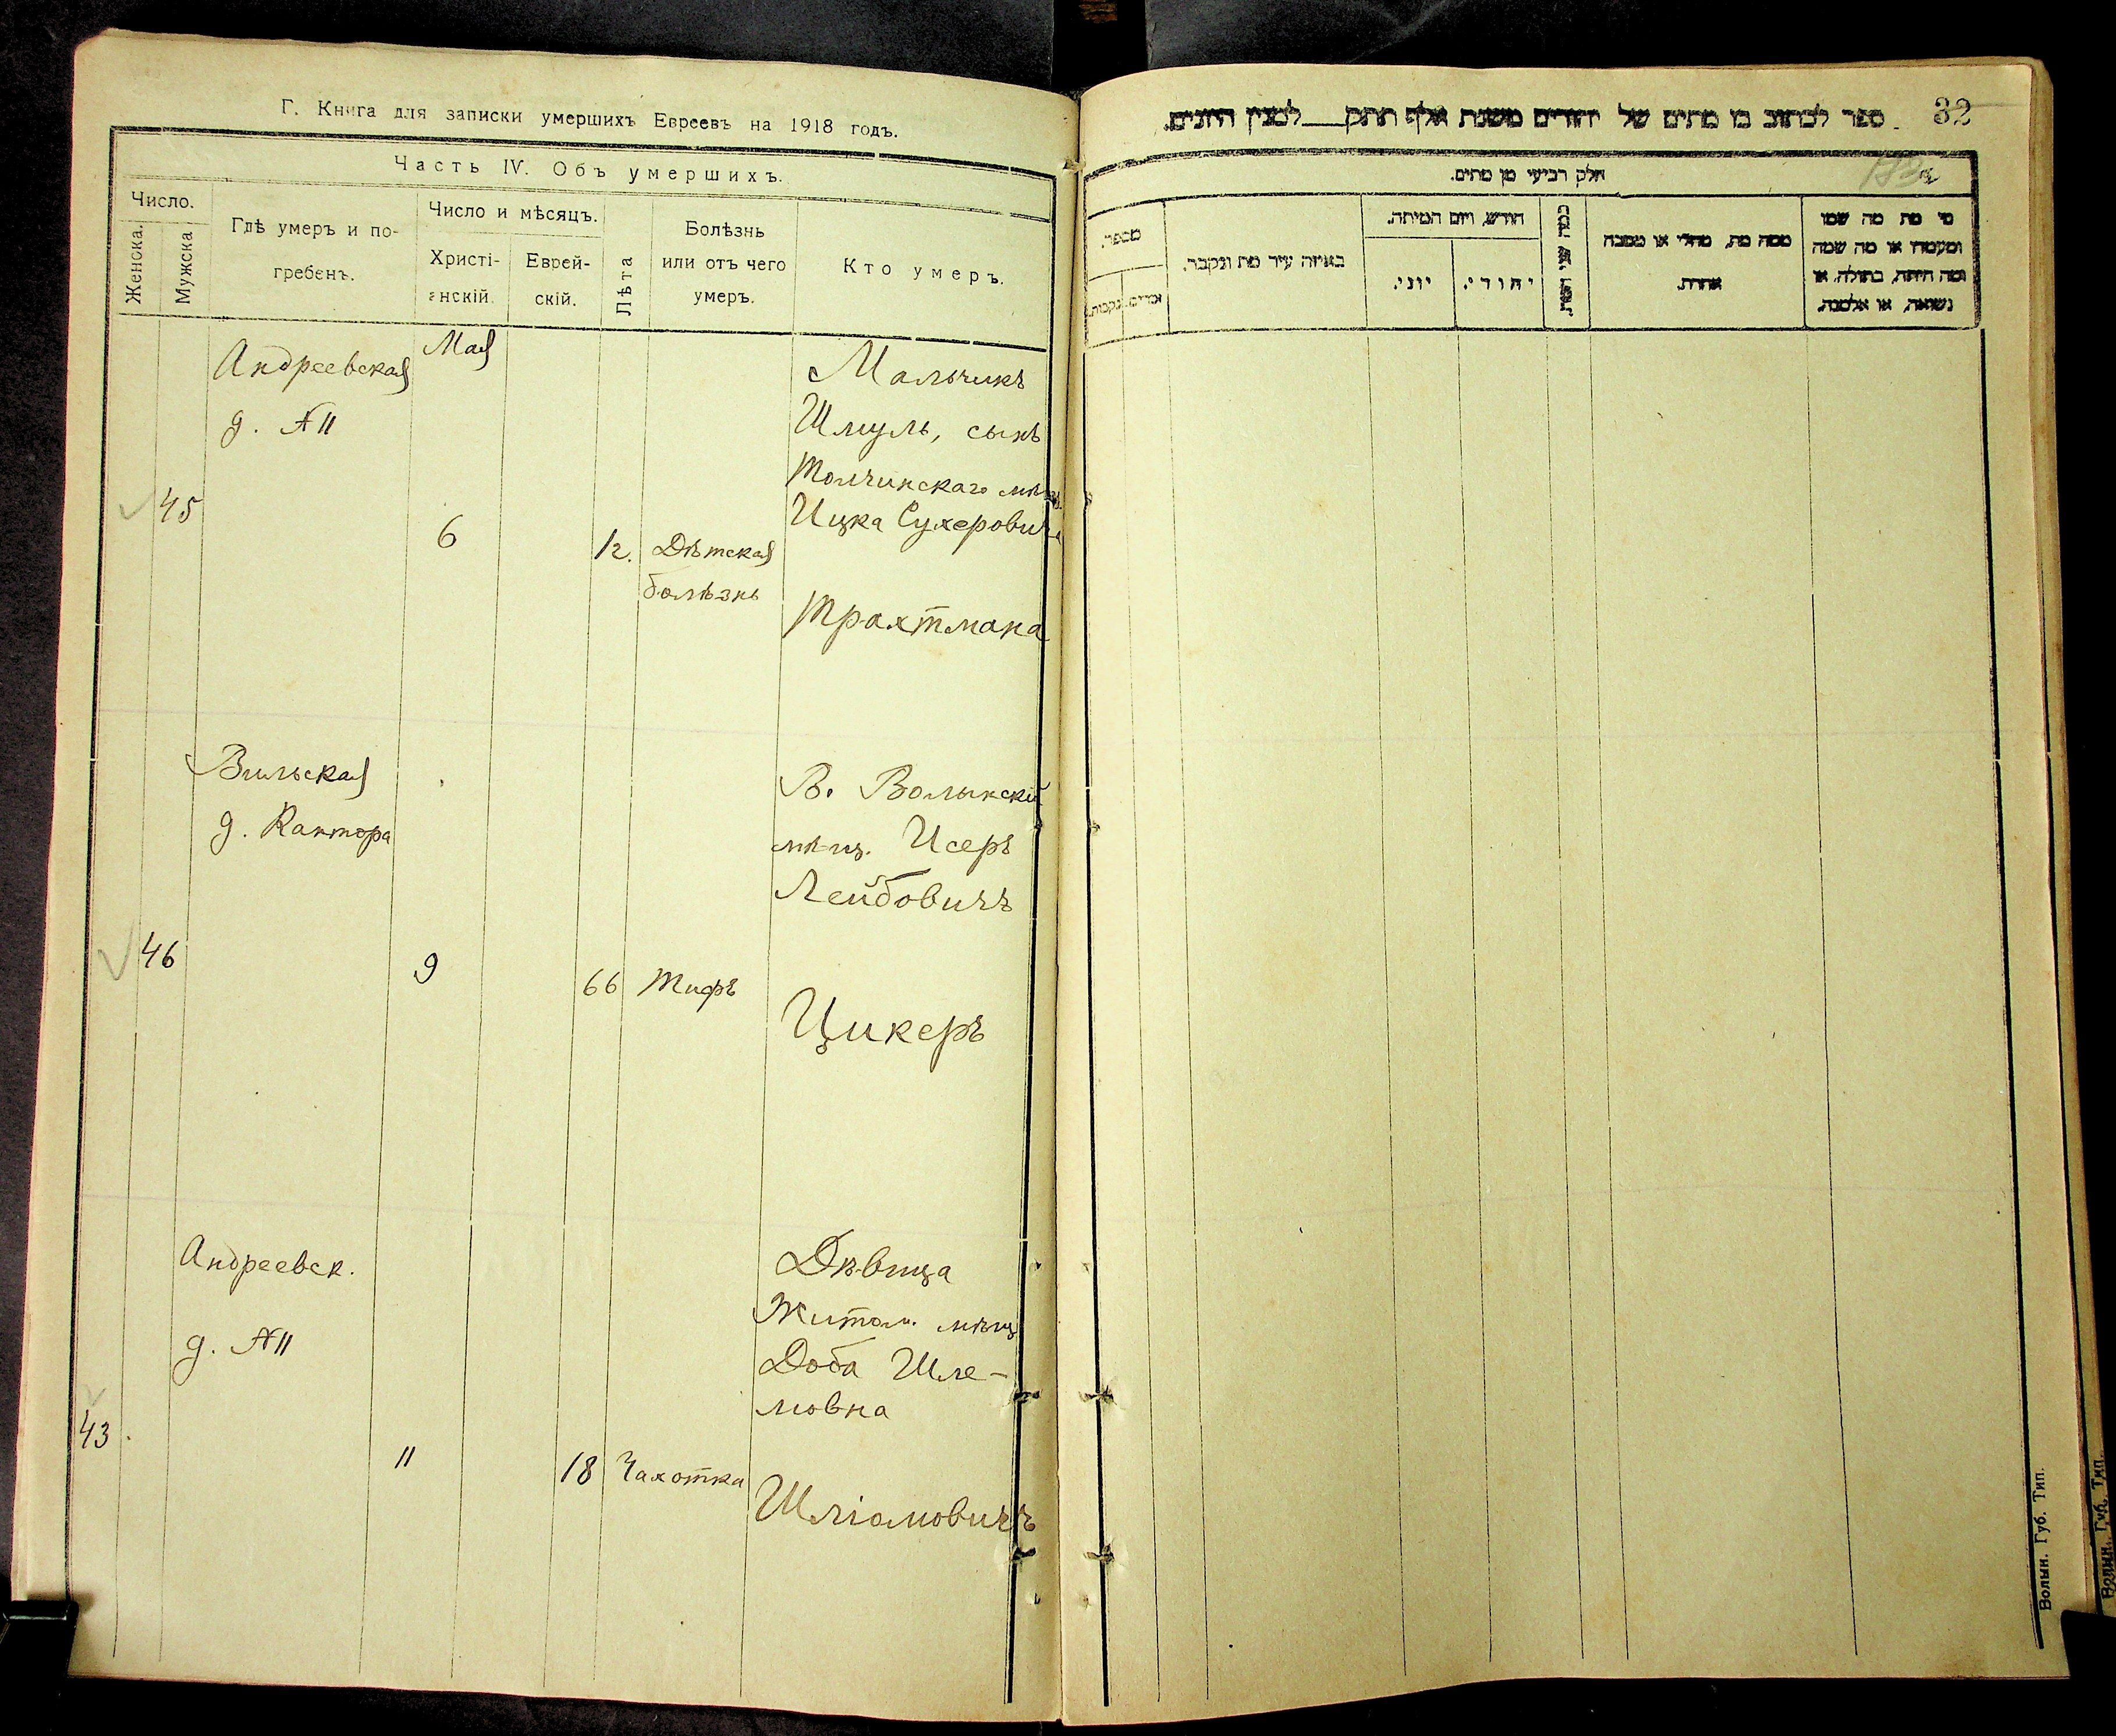 Г. Книга для записки умершихъ Евреевъ на 1918 годъ.
Часть IV. Объ умершихъ.
Число.
Женска.
Мужска
Гдѣ умеръ и по-
гребенъ.
Число и мѣсяцъ.
Христі-
анскій.
Еврей-
скій.
Лѣта
Болѣзнь
или отъ чего
умеръ.
Кто умеръ.
Андреевская
д. №11
Мая
45
6
12.
Дѣтская
болѣзнь
Мальчикъ
Шмуль, сынъ
Толчинскаго мѣщ.
Ицка Сухеровича
Трахтмана
Вильская
д. Кантора
46
9
66
Тифъ
В. Волынскій
мѣщ. Исеръ
Лейбовичъ
Цикеръ
Андреевск.
д. №11
43
11
18
Чахотка
Дѣвица
Житом. мѣщ
Доба Шле-
мовна
Шліомовичъ
ספר לכתוב בו מתים של יהודים משנת אלף תתק למנין היונים.
32
חלק רביעי מן מתים.
מספר.
זכרים.
נקבות.
באיזה עיר מת ונקבר.
חודש, ויום המיתה.
יוני.
יהודי.
ממה מת, מחלי או מסבה
אחרת.
מי מת מה שמו
ומעמדו או מה שמה
ומה היתה, בתולה, או
נשואה, או אלמנה.
Волын. Губ. Тип.
Волын. Губ. Тип.